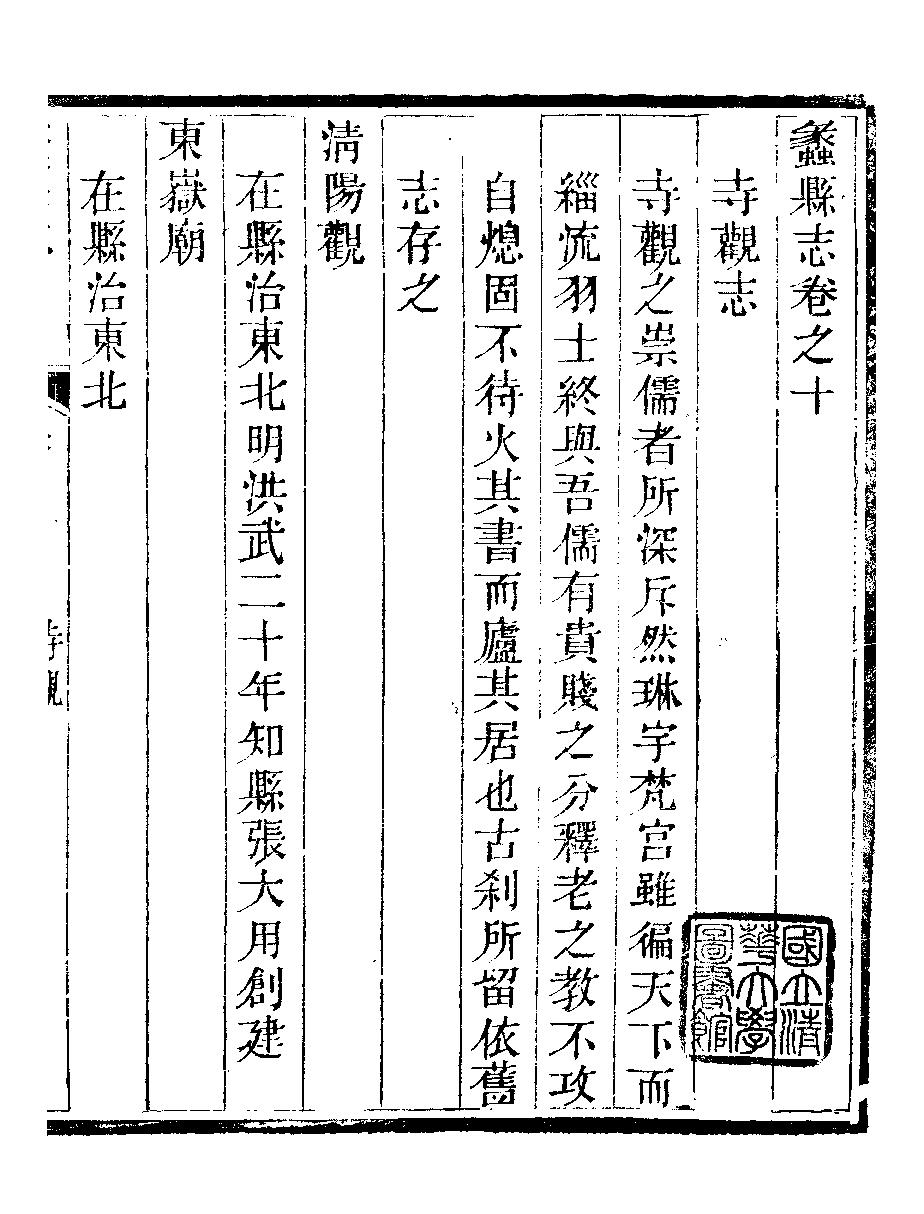 蠡縣志卷之十
寺觀志
寺觀之崇儒者所深斥然琳宇梵宫雖徧天下而
緇流羽士終與吾儒有貴賤之分釋老之教不攻
自熄固不待火其書而廬其居也古刹所留依舊
志存之
清陽觀
在縣治東北明洪武二十年知縣張大用創建
東嶽廟
在縣治東北
寺觀
國立清
華大學
圖書館